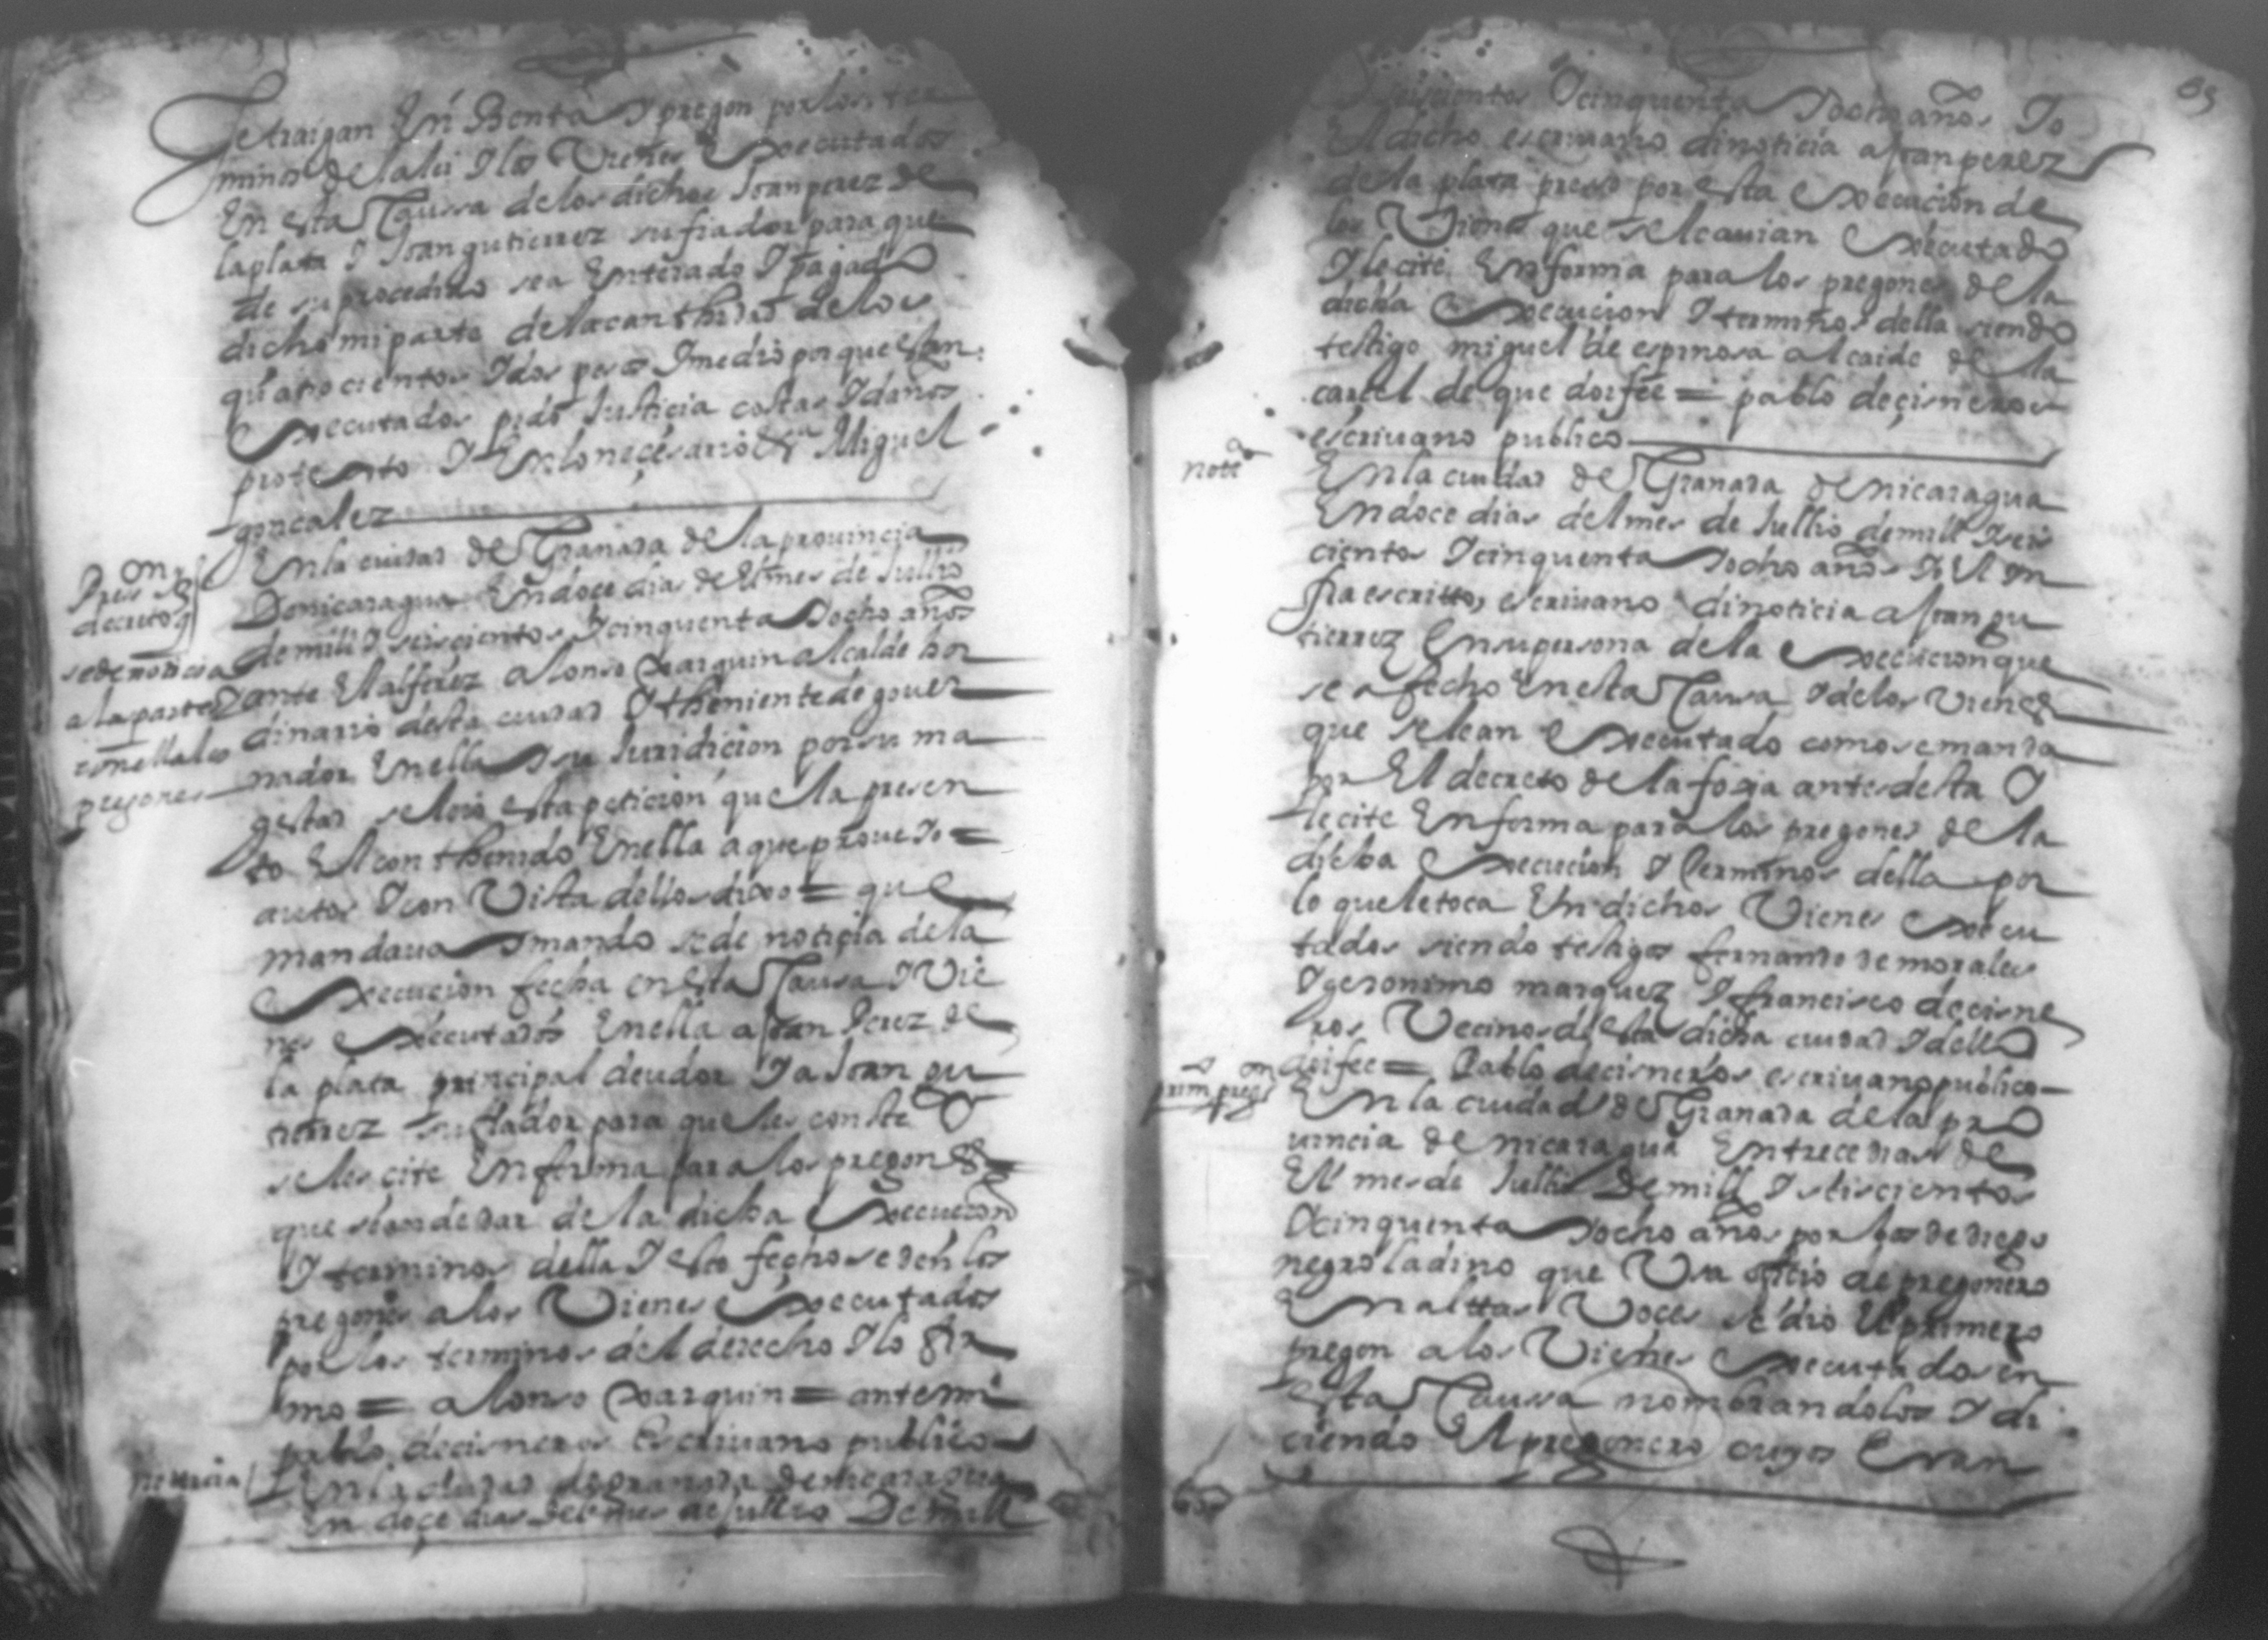 Se traigan En Benta I pregon por los ter
minos de la lei I los Vienes Executados
En esta Caussa de los dichos Joan perez de
la plata I Joan gutierrez su fiador para que
de su procedido sea Enterado I pagado
dicho mi parte de la canthidad de los
quatrocientos I dos pesos I medio por que estan
Executados pido Justicia costas I daños
protesto I En lo neçesario &a Miguel
gonçalez
Presson
decreto q
se de noticia
a la parte
con ella los
pregones
En la ciudad de Granada de la provincia
De nicaragua En doce dias de El mes de Jullio
de mill I seiscientos I cinquenta I ocho años
ante El alferez alonso Xarquin alcalde hor
dinario desta ciudad I theniente de gover
nador En ella I su Juridicion por su ma
gestad se leio esta petiçion que la presen
to El conthenido En ella a que proveio =
autos I con Vista dellos dixo = que
mandava I mando se de notiçia de la
Execucion fecha en esta Causa I Vie
nes Executados En ella a Joan Perez de
la plata principal deudor I a Joan gu
tierrez su fiador para que les conste I
se les cite En forma para los pregones
que se an de dar de la dicha Execucion
I terminos della I esto fecho se den los
pregones a los Vienes Executados
por los terminos del derecho I lo fir
mo = alonso Xarquin = ante mi
pablo de cisneros Escrivano publico
noticia
En la ciudad de granada de nicaragua
En doçe dias del mes de jullio De mill
69
seiscientos I cinquenta I ocho años Io
El dicho escrivano di noticia a Joan perez
de la plata preso por esta Execucion de
los Vienes que se le avian Executado
I le cite En forma para los pregones de la
dicha Execucion I terminos della siendo
testigo miguel de espinosa alcaide de la
carcel de que doi fee = pablo de çisneros
escrivano publico
notta
En la ciudad de Granada de nicaragua
En doce dias del mes de Jullio de mill I seis
cientos I cinquenta I ocho años Io El yn
fra escritto, escrivano di noticia a Joan gu
tierrez En su persona de la Execucion que
se a fecho En esta Causa I de los Vienes
que se le an Executado como se manda
por El decreto de la foxa antes desta I
le cite En forma para los pregones de la
dicha Execucion I terminos della por
lo que le toca En dichos Vienes Execu
tados siendo testigos fernando de morales
I geronimo marquez I francisco de cisne
ros Vecinos de esta dicha ciudad I dello
doi fee = Pablo de cisneros escrivano publico
prim pregon
En la ciudad de Granada de la pro
vincia de nicaragua En trece dias de
El mes de Jullio De mill I seiscientos
I cinquenta I ocho años por boz de diego
negro ladino que Usa ofiçio de pregonero
En alttas Voces se dio El primero
pregon a los Vienes Executados en
esta Caussa nombrandolos I di
ciendo El pregonero cuyos Eran